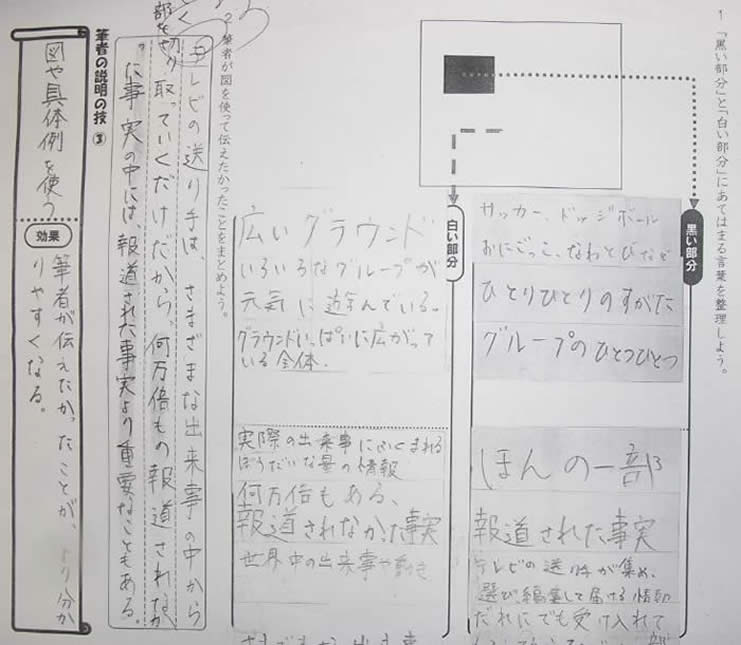 1 「黒い部分」と「白い部分」にあてはまる言葉を整理しよう。
黒い部分
サッカー、ドッジボール
おにごっこ、なわとびなど
ひとりひとりのすがた
グループのひとつひとつ
ほんの一部
報道された事実
テレビの送り手が集め、
選び、編集して届ける情報
だれにでも受け入れて
白い部分
広いグラウンド
いろいろなグループが
元気に遊んでいる。
グラウンドいっぱいに広がって
いる全体.
実際の出来事にふくまれる
ぼうだいな量の情報
何万倍もある、
報道されなかった事実
世界中の出来事や動き
さまざまな出来事
2 筆者が図を使って伝えたかったことをまとめよう。
テレビの送り手は、さまざまな出来事の中から
部を切り取っていくだけだから、何万倍もの報道されなかっ
た事実の中には、報道された事実より重要なこともある。
筆者の説明の技 ③
図や具体例を使う
効果
筆者が伝えたかったことが、より分か
りやすくなる。